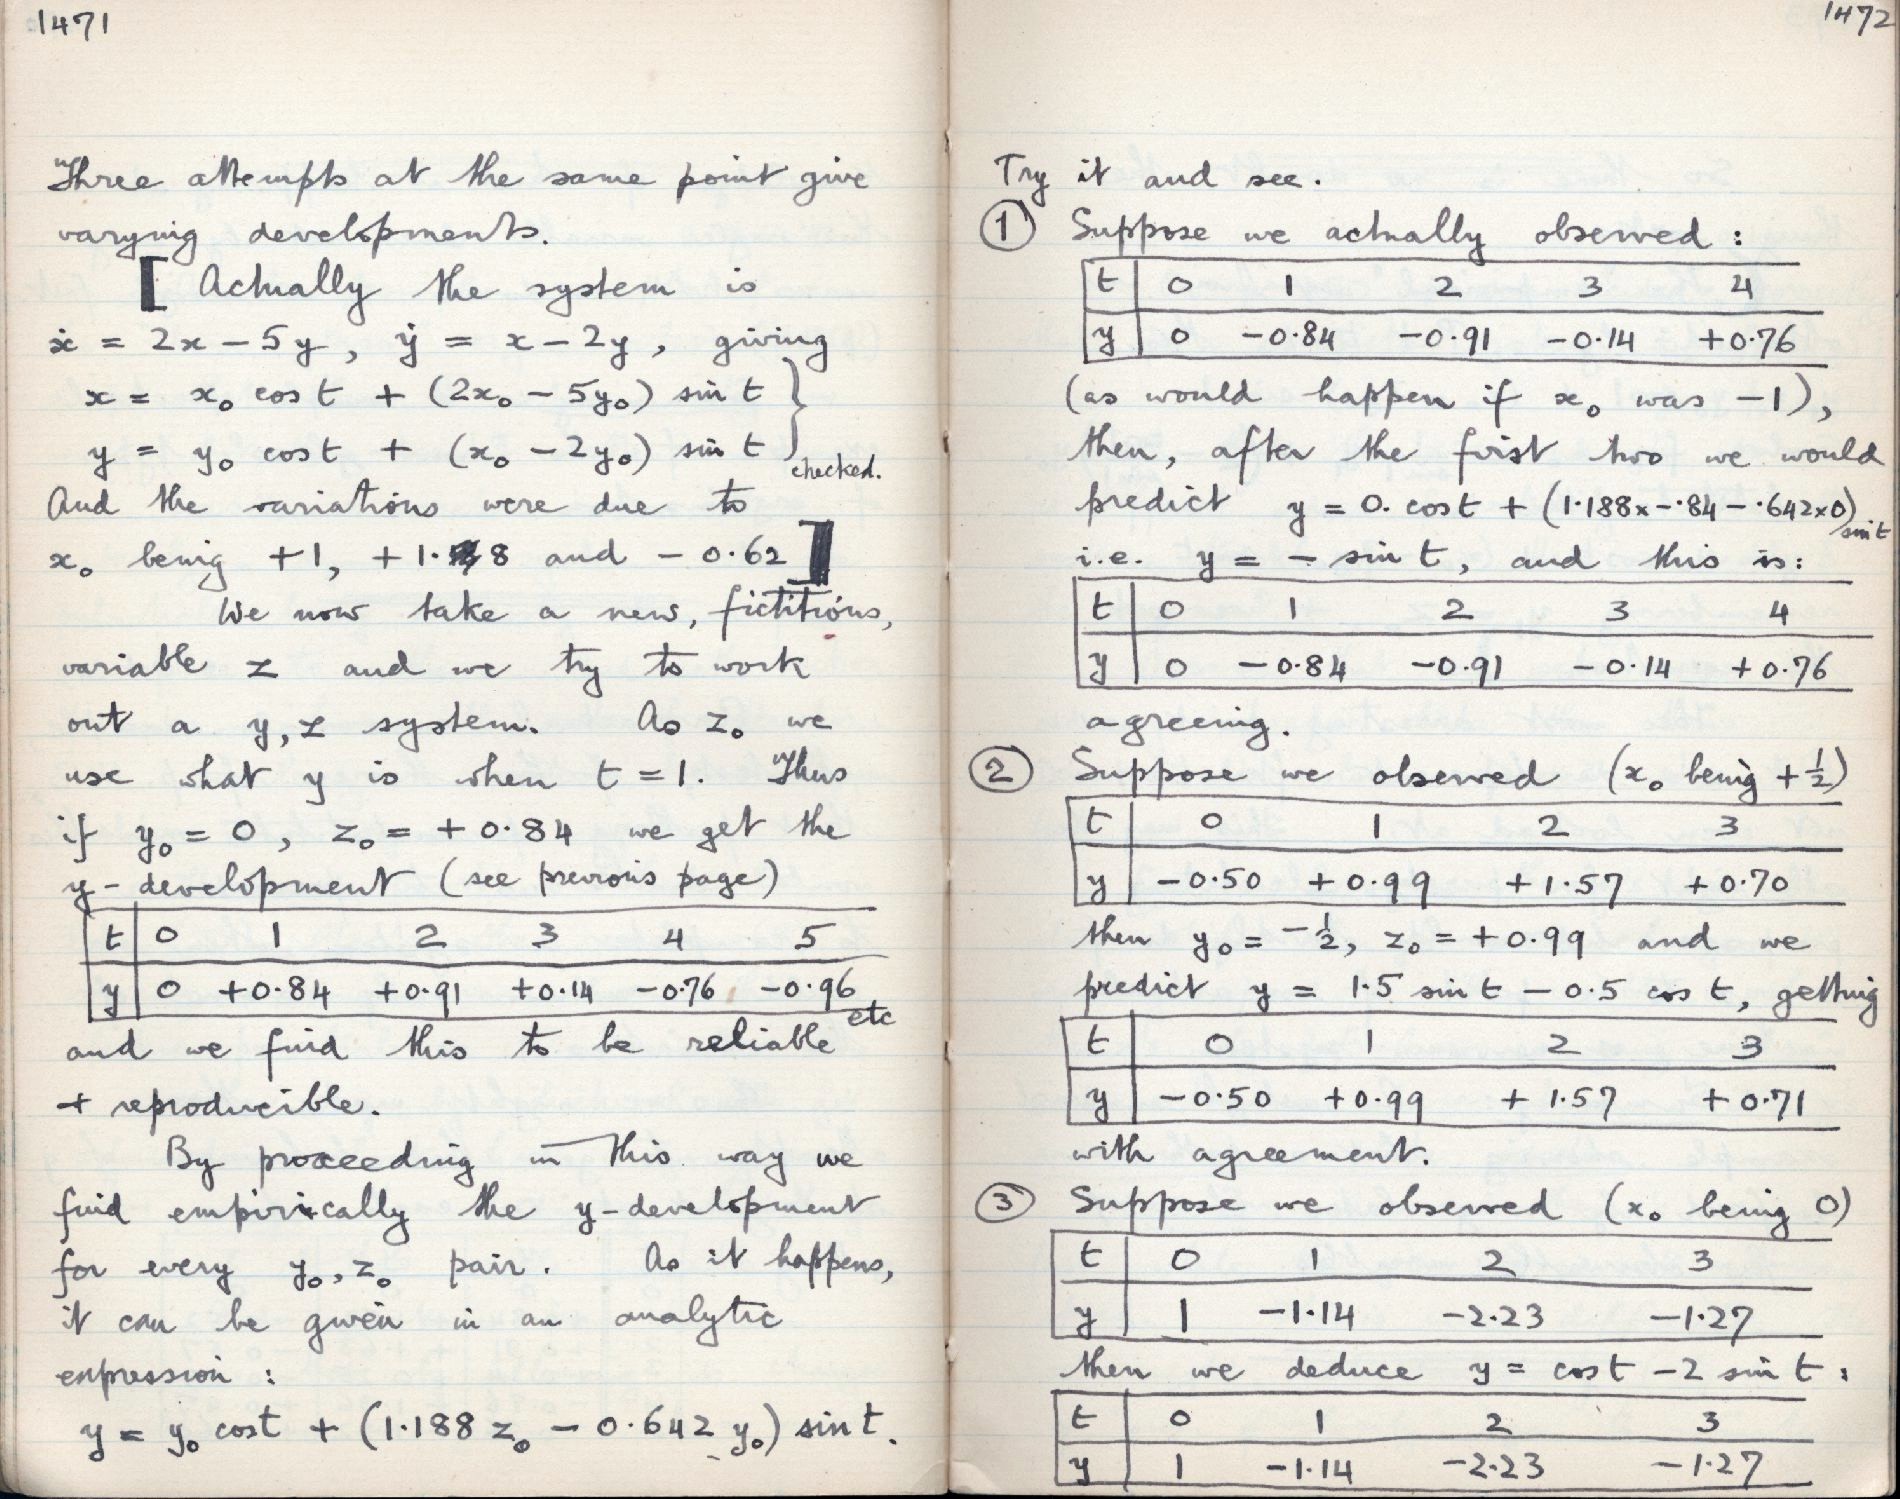 1471
Three attempts at the same point give
varying developments.
[ Actually the system is
ẋ = 2x − 5y, ẏ = x − 2y, giving
x = x₀ cos t + (2x₀ − 5y₀) sin t }
y = y₀ cos t + (x₀ − 2y₀) sin t } checked.
And the variations were due to
x₀ being +1, +1·8 and −0·62 ]
We now take a new, fictitious,
variable z and we try to work
out a y, z system. As z₀ we
use what y is when t = 1. Thus
if y₀ = 0, z₀ = +0·84 we get the
y-development (see previous page)
t 0 1 2 3 4 5
y 0 +0·84 +0·91 +0·14 −0·76 −0·96 etc
and we find this to be reliable
+ reproducible.
By proceeding in this way we
find empirically the y-development
for every y₀, z₀ pair. As it happens,
it can be given in an analytic
expression :
y = y₀ cos t + (1·188 z₀ − 0·642 y₀) sin t.
1472
Try it and see.
① Suppose we actually observed :
t 0 1 2 3 4
y 0 −0·84 −0·91 −0·14 +0·76
(as would happen if x₀ was −1),
then, after the first two we would
predict y = 0. cos t + (1·188x−·84 − ·642x0) sin t
i.e. y = − sin t, and this is:
t 0 1 2 3 4
y 0 −0·84 −0·91 −0·14 +0·76
agreeing.
② Suppose we observed (x₀ being +½)
t 0 1 2 3
y −0·50 +0·99 +1·57 +0·70
then y₀ = −½, z₀ = +0·99 and we
predict y = 1·5 sin t − 0·5 cos t, getting
t 0 1 2 3
y −0·50 +0·99 +1·57 +0·71
with agreement.
③ Suppose we observed (x₀ being 0)
t 0 1 2 3
y 1 −1·14 −2·23 −1·27
then we deduce y = cos t − 2 sin t :
t 0 1 2 3
y 1 −1·14 −2·23 −1·27